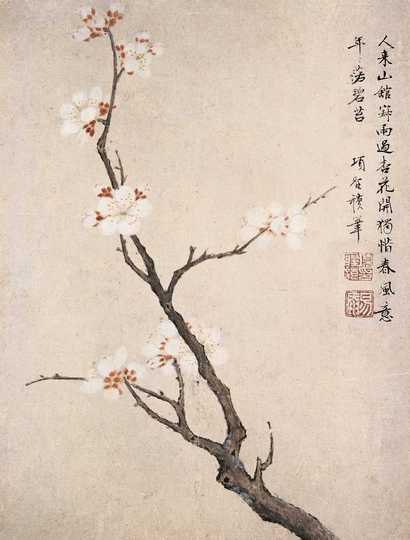 人來山舘寂雨過杏花開獨惜春風意
年々落碧苔　項聖謨筆